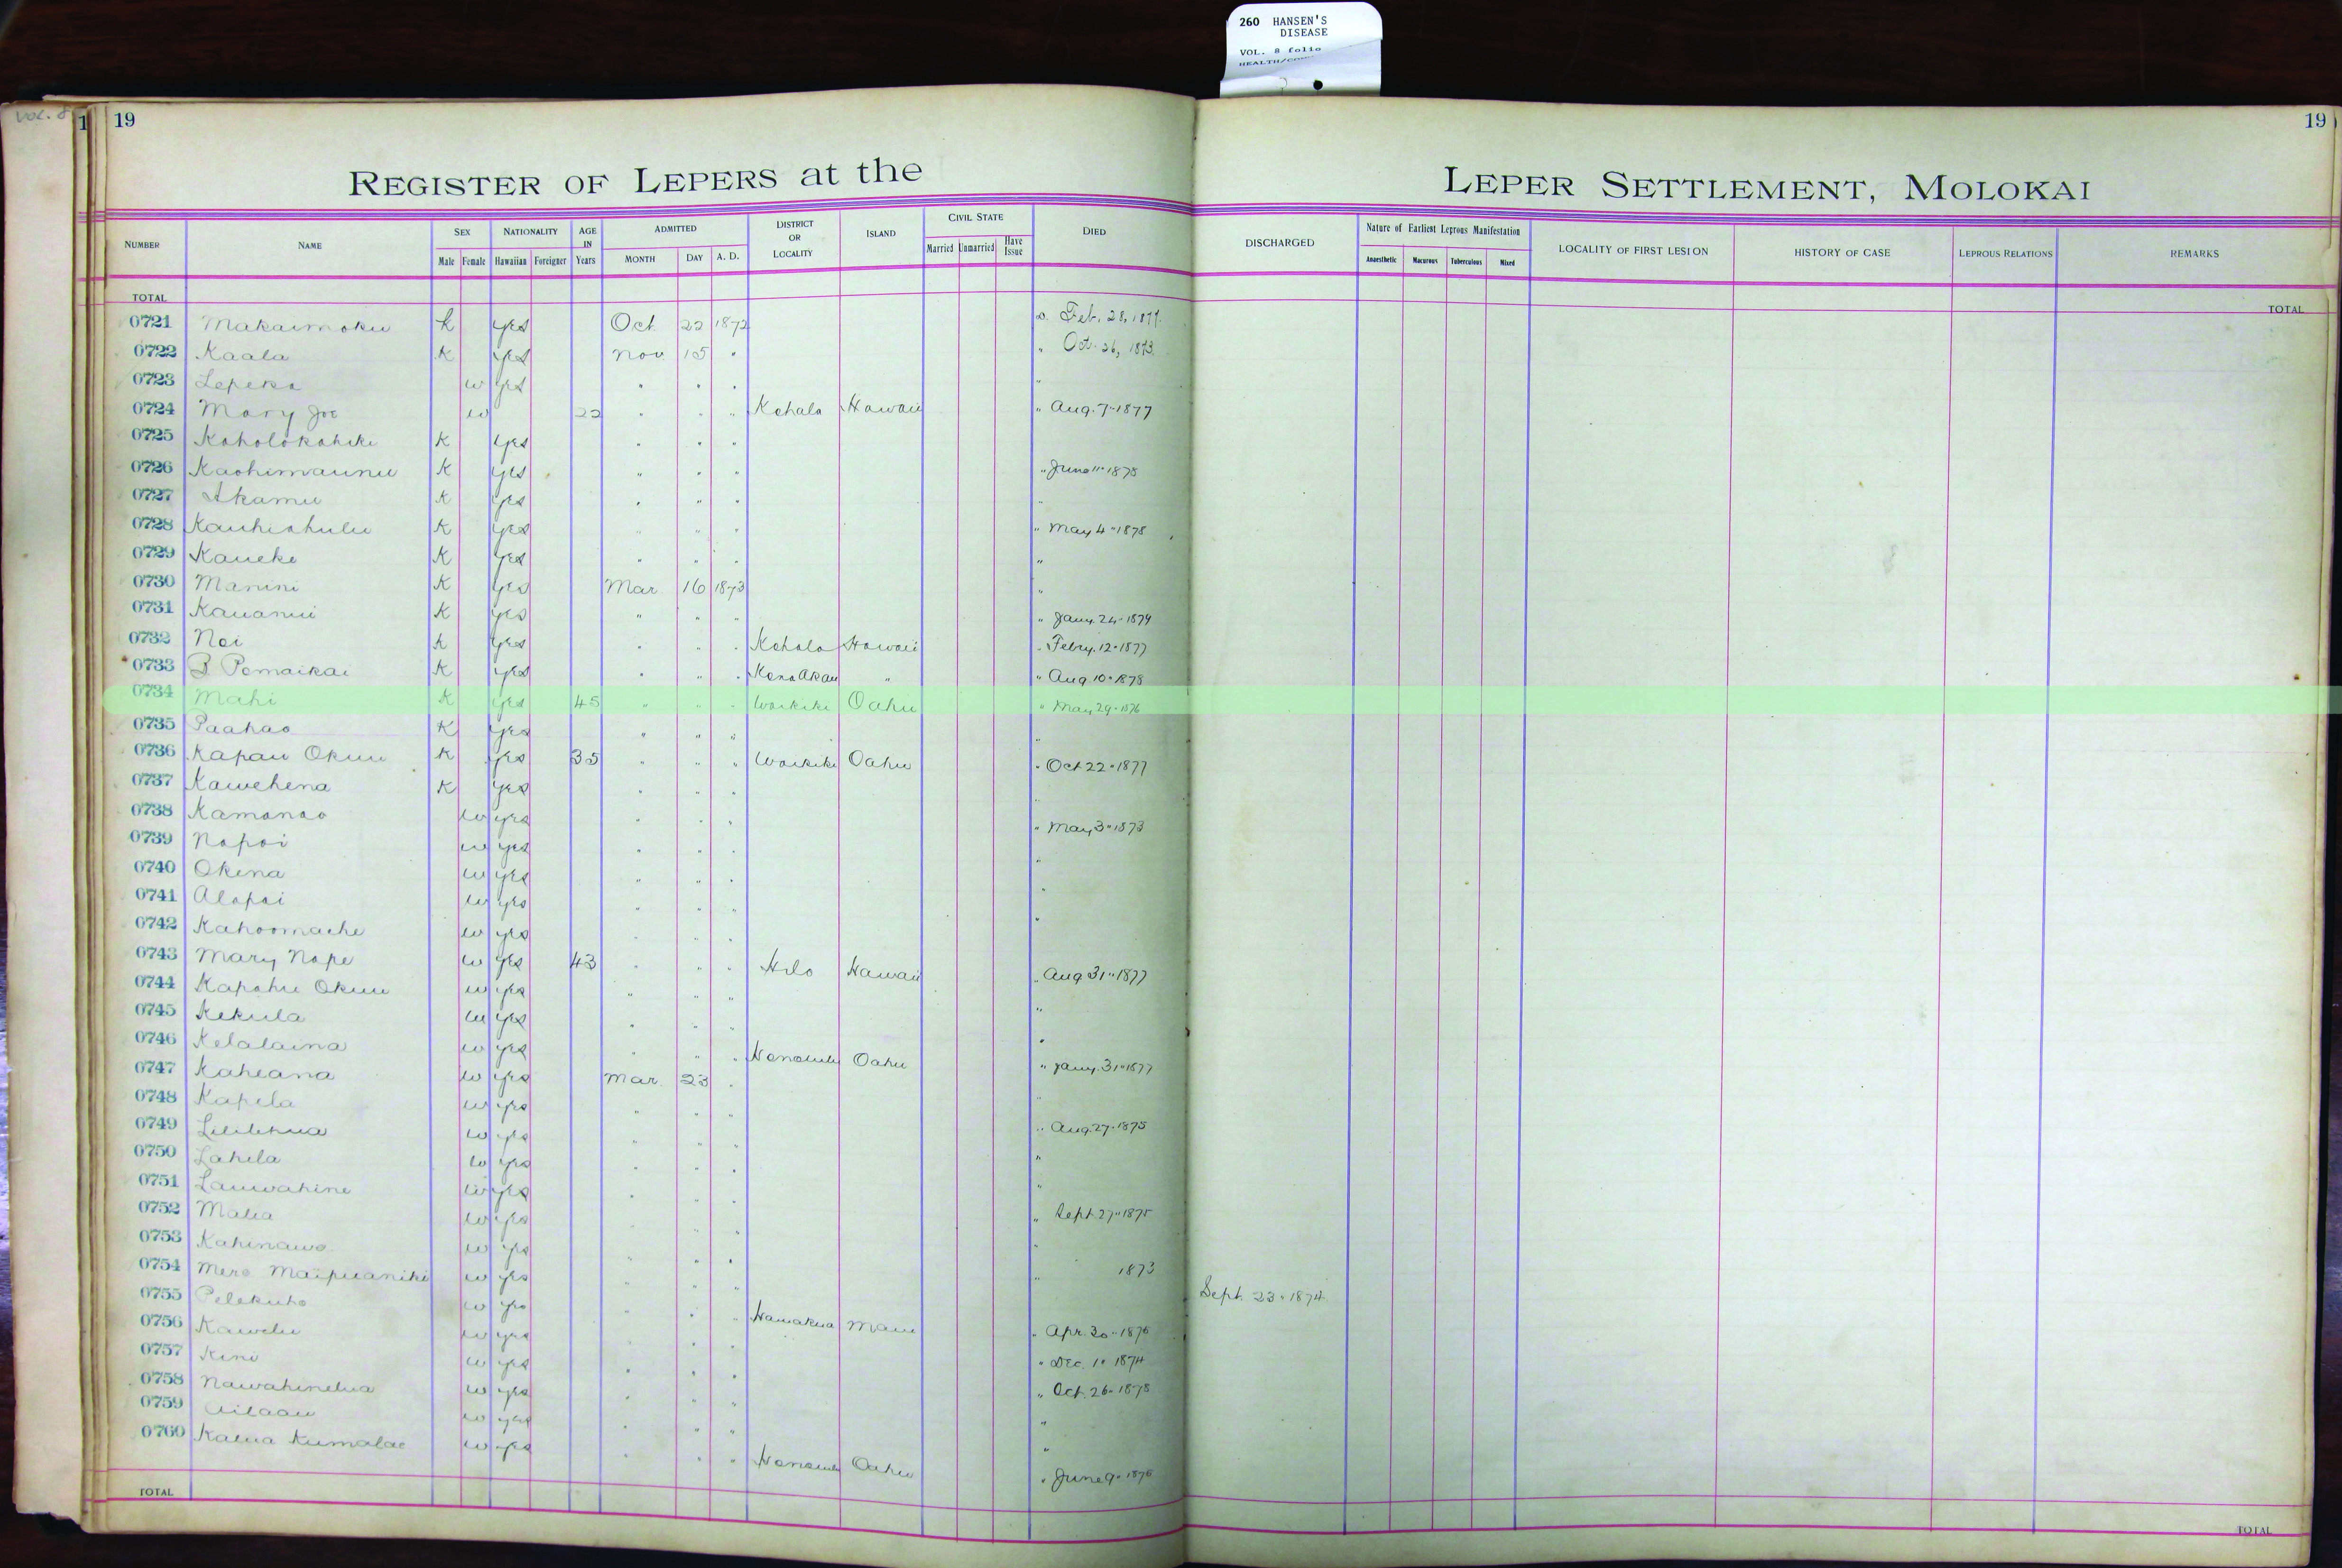 260 HANSEN'S
DISEASE
VOL. 8 folio
Vol. 8
1 19 19
REGISTER OF LEPERS at the LEPER SETTLEMENT, MOLOKAI
NUMBER NAME SEX Male Female NATIONALITY Hawaiian Foreigner AGE IN Years ADMITTED MONTH DAY A. D. DISTRICT OR LOCALITY ISLAND CIVIL STATE Married Unmarried Have Issue DIED DISCHARGED Nature of Earliest Leprous Manifestation Anaesthetic Macurous Tuberculous Mixed LOCALITY OF FIRST LESION HISTORY OF CASE LEPROUS RELATIONS REMARKS
TOTAL TOTAL
0721 Makaimoku K yes Oct 22 1872 Feb. 28, 1877.
0722 Kaala K yes Nov 15 " " Oct. 26, 1873.
0723 Lepeka w yes " " " "
0724 Mary Joe w 22 " " " Kohala Hawaii " Aug. 7 " 1877
0725 Koholokahiki K yes " " "
0726 Kaohimaunu K yes " " " " June 11 " 1875
0727 Akamu K yes " " " "
0728 Kauhiahulu K yes " " " " May 4 " 1875
0729 Kaueke K yes " " " "
0730 Manini K yes Mar 16 1873 "
0731 Kauanui K yes " " " " Jany. 24 " 1874
0732 Noi K yes " " " Kohala Hawaii " Febry. 12 " 1877
0733 B Pomaikai K yes " " " Kona Akau " " Aug 10 " 1878
0734 Mahi K yes 45 " " " Waikiki Oahu " May 29 " 1876
0735 Paahao K yes " " " "
0736 Kapau Okuu K yes 35 " " " Waikiki Oahu " Oct 22 " 1877
0737 Kawehena K yes " " " "
0738 Kamanao w yes " " " " May 3 " 1873
0739 Napoi w yes " " " "
0740 Okina w yes " " " "
0741 Alapai w yes " " " "
0742 Kahoomaehe w yes " " "
0743 Mary Nape w yes 43 " " " Hilo Hawaii " Aug 31 " 1877
0744 Kapahu Okuu w yes " " " "
0745 Kekula w yes " " "
0746 Kelalaina w yes " " " Honolulu Oahu " Jany. 31 " 1877
0747 Kaheana w yes Mar. 23 " "
0748 Kapela w yes " " " " Aug. 27 " 1875
0749 Lililehua w yes " " " "
0750 Lahela w yes " " " "
0751 Lauwahine w yes " " " Sept 27 " 1875
0752 Malia w yes " " " "
0753 Kahinawe w yes " " " " 1873
0754 Mere Maipuaniki w yes " " " Sept. 23 " 1874
0755 Pelekuho w yes " " " Hamakua Maui " Apr. 30 " 1876
0756 Kawelu w yes " " " Dec. 1 " 1874
0757 Kini w yes " " " " Oct. 26 " 1875
0758 Nawahinelua w yes " " " "
0759 Ailaau w yes " " " "
0760 Kalua Kumalae w yes " " " Honolulu Oahu " June 9 " 1876
TOTAL TOTAL